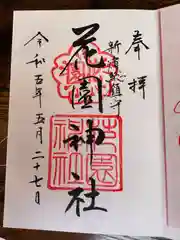 奉拝
新宿総鎮守
花園神社
令和五年五月二十七日